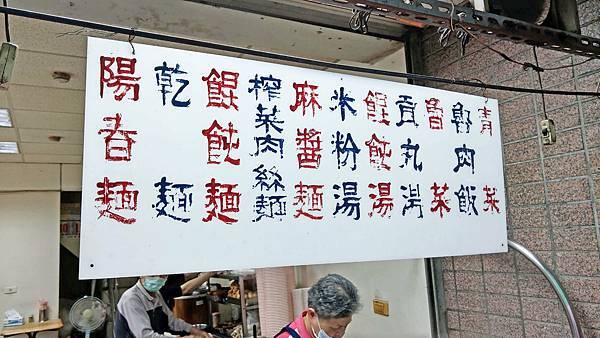 陽春麵
乾麵
餛飩麵
榨菜肉絲麵
麻醬麵
米粉湯
餛飩湯
貢丸湯
魯菜
魯肉飯
青菜